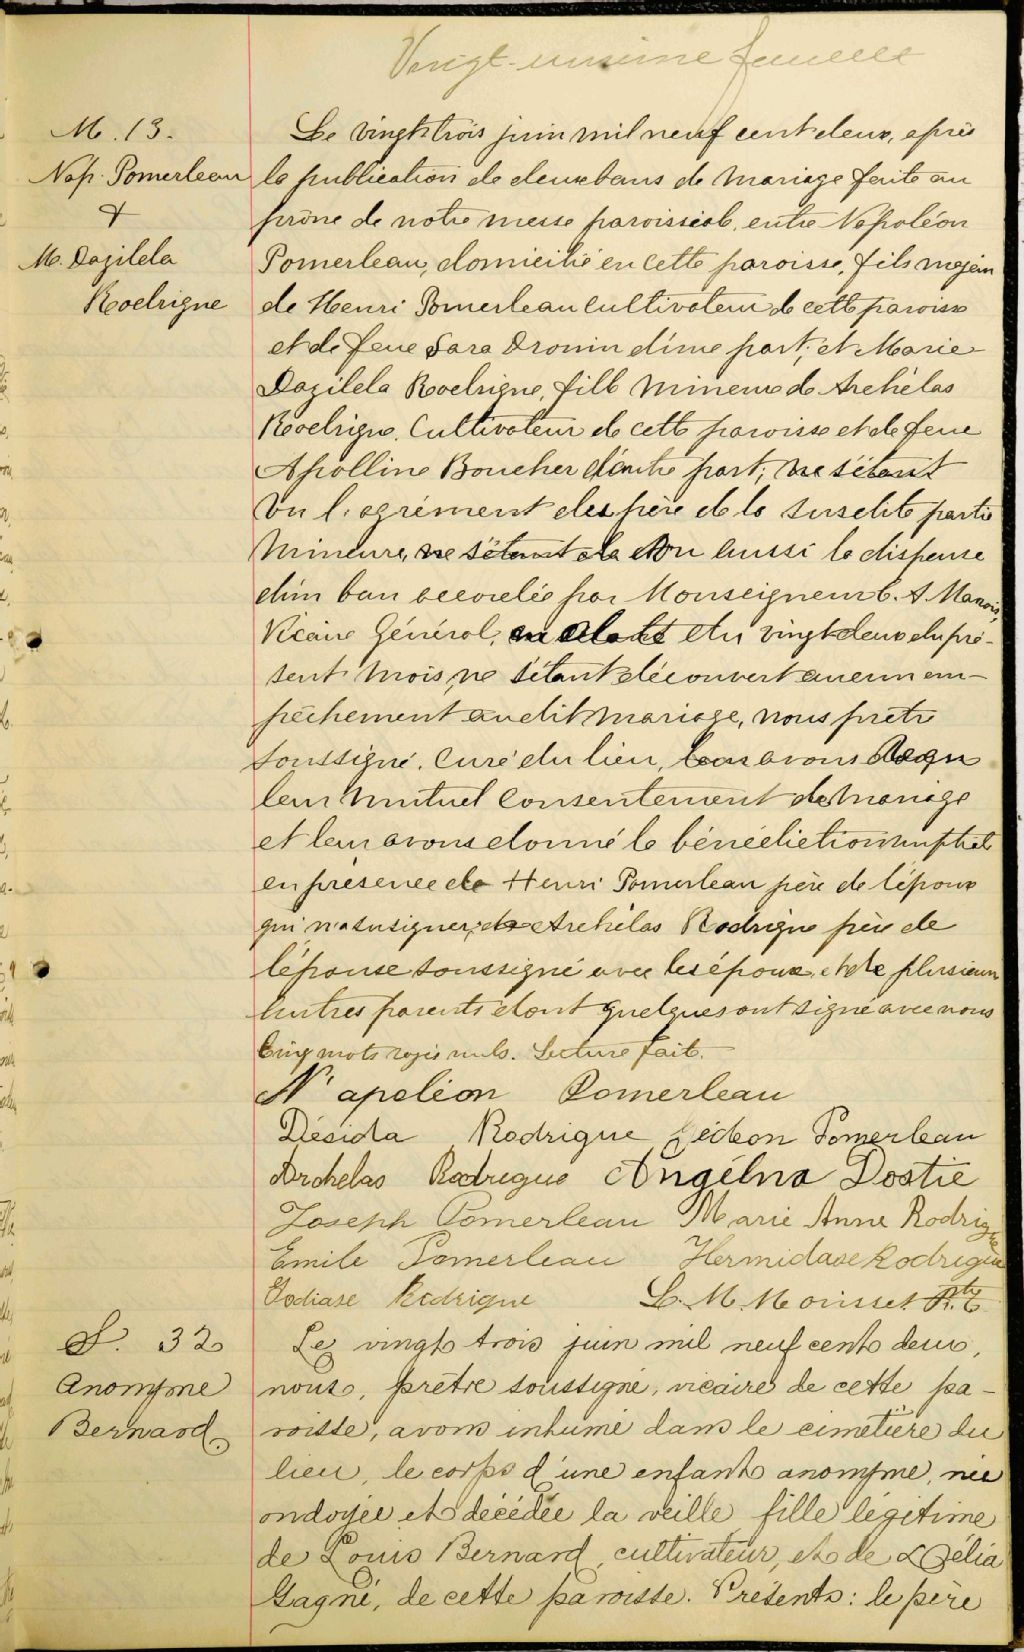 Vingt-unième feuille
M. 13.
Nap. Pomerleau
&
M. Dazilda
Rodrigue
Le vingt trois juin mil neuf cent deux, après
la publication de deux bans de mariage faite au
prône de notre messe paroissiale, entre Napoléon
Pomerleau, domicilié en cette paroisse, fils majeur
de Henri Pomerleau cultivateur de cette paroisse
et de feue Sara Drouin d'une part; et Marie
Dazilda Rodrigue, fille mineure de Archélas
Rodrigue, Cultivateur de cette paroisse et de feue
Apolline Boucher d'autre part; ne s'étant
Vu l'agrément des père de la susdite partie
mineure, ne s'étant de Vu aussi la dispense
d'un ban accordée par Monseigneur C. A. Marois,
Vicaire Général, en date du vingt deux du pré-
sent mois, ne s'étant découvert aucun em-
pêchement au dit mariage, nous prêtre
soussigné, Curé du lieu, avons reçu
leur mutuel consentement de mariage
et leur avons donné la bénédiction nuptiale
en présence de Henri Pomerleau père de l'époux
qui n'a su signer, de Archélas Rodrigue père de
l'épouse soussigné avec les époux, et de plusieurs
autres parents dont quelques ont signé avec nous
Cinq mots rayés nuls. Lecture faite.
N'apoléon Pomerleau
Désida Rodrigue Gédéon Pomerleau
Archelas Rodrigue Angélna Dostie
Joseph Pomerleau Marie Anne Rodrigue
Emile Pomerleau Hermidase Rodrigue
Godiase Rodrigue L. M. Morisset Ptre
S. 32
Anonyme
Bernard
Le vingt trois juin mil neuf cent deux,
nous, prêtre soussigné, vicaire de cette pa-
roisse, avons inhumé dans le cimetière du
lieu, le corps d'une enfant anonyme, née
ondoyée et décédée la veille fille légitime
de Louis Bernard, cultivateur, et de Délia
Gagné, de cette paroisse. Présents: le père